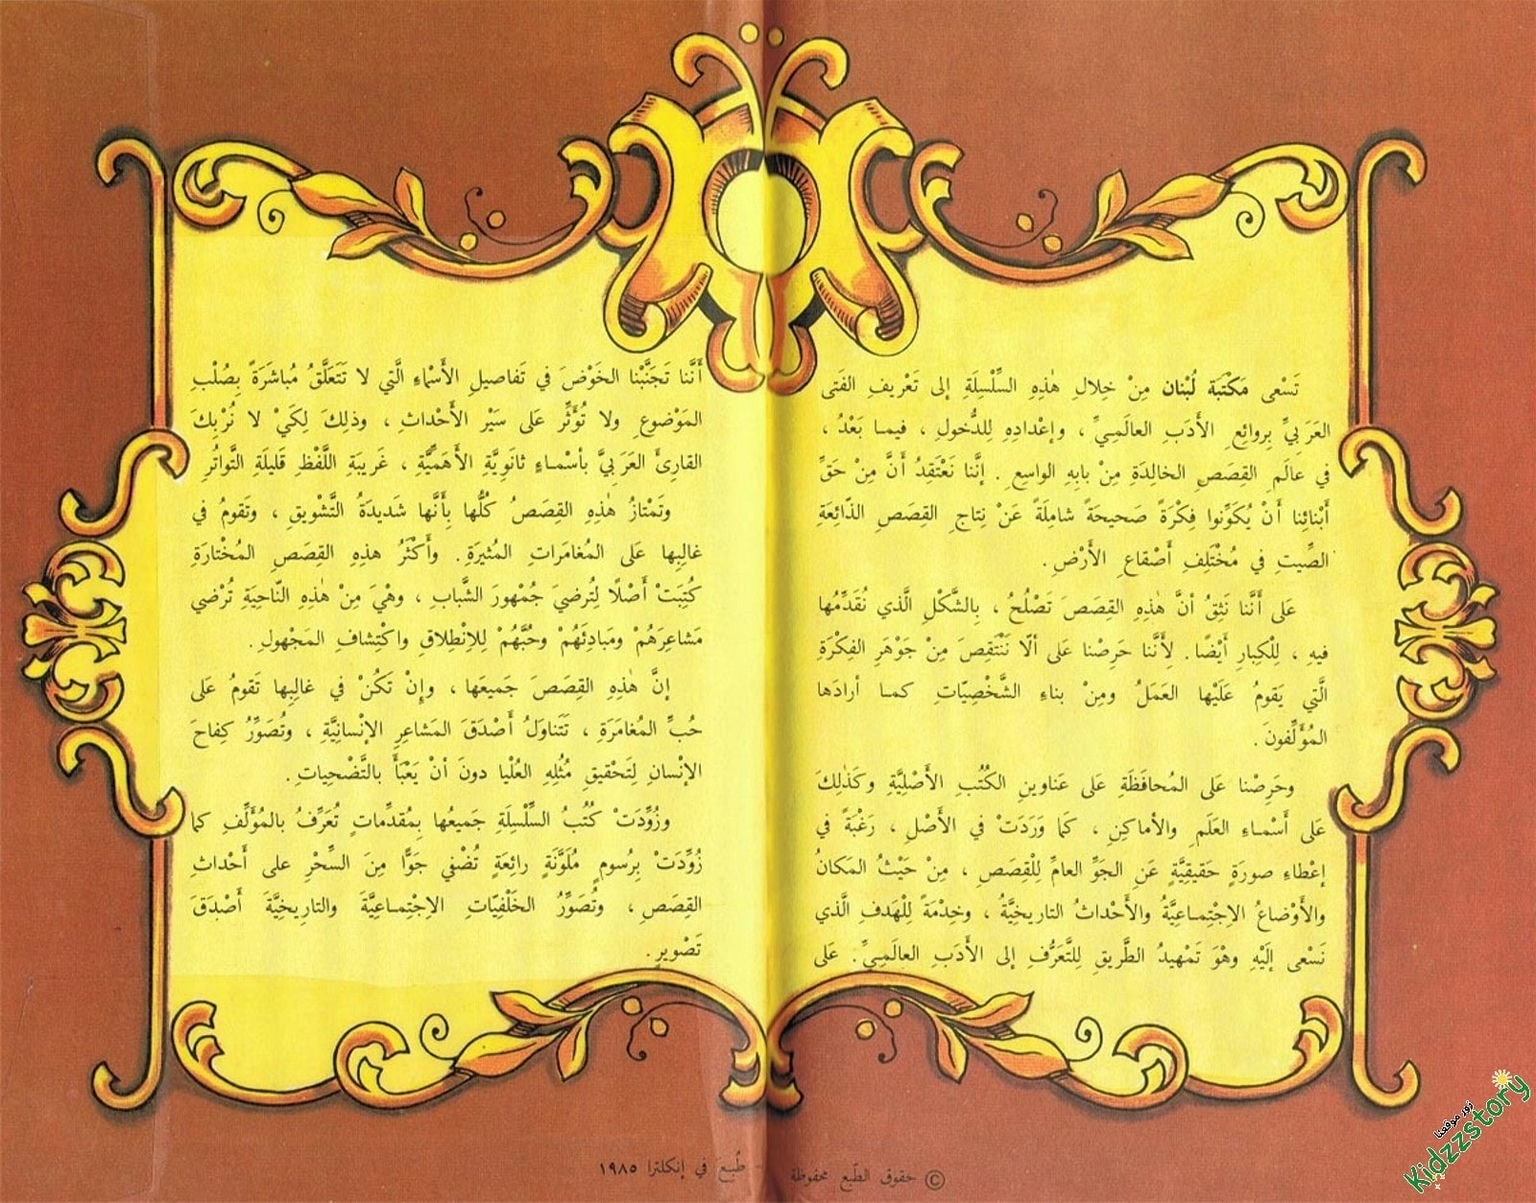 تَسْعى مَكْتَبَة لُبْنان مِنْ خِلالِ هٰذِهِ السِّلْسِلَةِ إلى تَعْريفِ الفَتى
العَرَبِيِّ بِروائِعِ الأَدَبِ العالَمِيِّ ، وإعْدادِهِ لِلدُّخولِ ، فيما بَعْدُ ،
في عالَمِ القِصَصِ الخالِدَةِ مِنْ بابِهِ الواسِعِ . إنَّنا نَعْتَقِدُ أَنَّ مِنْ حَقِّ
أَبْنائِنا أَنْ يُكَوِّنوا فِكْرَةً صَحيحَةً شامِلَةً عَنْ نِتاجِ القِصَصِ الذّائِعَةِ
الصِّيتِ في مُخْتَلِفِ أَصْقاعِ الأَرْضِ .
عَلى أَنَّنا نَثِقُ أَنَّ هٰذِهِ القِصَصَ تَصْلُحُ ، بِالشَّكْلِ الَّذي نُقَدِّمُها
فيهِ ، لِلْكِبارِ أَيْضًا . لِأَنَّنا حَرِصْنا عَلى أَلّا نَنْتَقِصَ مِنْ جَوْهَرِ الفِكْرَةِ
الَّتي يَقومُ عَلَيْها العَمَلُ ومِنْ بناءِ الشَّخْصِيّاتِ كما أَرادَها
المُؤَلِّفونَ .
وحَرِصْنا عَلى المُحافَظَةِ عَلى عَناوينِ الكُتُبِ الأَصْلِيَّةِ وكَذٰلِكَ
عَلى أَسْماءِ العَلَمِ والأَماكِنِ ، كَما وَرَدَتْ في الأَصْلِ ، رَغْبَةً في
إعْطاءِ صورَةٍ حَقيقِيَّةٍ عَنِ الجَوِّ العامِّ لِلْقِصَصِ ، مِنْ حَيْثُ المَكانُ
والأَوْضاعُ الاِجْتِماعِيَّةُ والأَحْداثُ التاريخِيَّةُ ، وخِدْمَةً لِلْهَدفِ الَّذي
نَسْعى إلَيْهِ وهْوَ تَمْهيدُ الطَّريقِ لِلتَّعَرُّفِ إلى الأَدَبِ العالَمِيِّ . عَلى
أَنَّنا تَجَنَّبْنا الخَوْضَ في تَفاصيلِ الأَسْماءِ الَّتي لا تَتَعَلَّقُ مُباشَرَةً بِصُلْبِ
المَوْضوعِ ولا تُؤَثِّرُ عَلى سَيْرِ الأَحْداثِ ، وذٰلِكَ لِكَيْ لا نُرْبِكَ
القارِئَ العَرَبِيَّ بأَسْماءٍ ثانَوِيَّةِ الأَهَمِّيَّةِ ، غَريبَةِ اللَّفْظِ قَليلَةِ التَّواتُرِ
وتَمْتازُ هٰذِهِ القِصَصُ كُلُّها بِأَنَّها شَديدَةُ التَّشْويقِ ، وتَقومُ في
غالِبِها عَلى المُغامَراتِ المُثيرَةِ . وأَكْثَرُ هذِهِ القِصَصِ المُخْتارَةِ
كُتِبَتْ أَصْلًا لِتُرضيَ جُمْهورَ الشَّبابِ ، وهْيَ مِنْ هٰذِهِ النّاحِيَةِ تُرْضي
مَشاعِرَهُمْ ومَبادِئَهُمْ وحُبَّهُمْ لِلاِنْطِلاقِ واكْتِشافِ المَجْهولِ .
إنَّ هٰذِهِ القِصَصَ جَميعَها ، وإِنْ تَكُنْ في غالِبِها تَقومُ عَلى
حُبِّ المُغامَرَةِ ، تَتَناوَلُ أَصْدَقَ المَشاعِرِ الإنْسانِيَّةِ ، وتُصَوِّرُ كِفاحَ
الإنْسانِ لِتَحْقيقِ مُثُلِهِ العُلْيا دونَ أَنْ يَعْبَأَ بالتَّضْحِياتِ .
وزُوِّدَتْ كُتُبُ السِّلْسِلَةِ جَميعُها بِمُقدِّماتٍ تُعَرِّفُ بالمُؤَلِّفِ كما
زُوِّدَتْ بِرُسومٍ مُلَوَّنَةٍ رائِعَةٍ تُضْفي جَوًّا مِنَ السِّحْرِ عَلى أَحْداثِ
القِصَصِ ، وتُصَوِّرُ الخَلْفِيّاتِ الاِجْتِماعِيَّةَ والتاريخِيَّةَ أَصْدَقَ
تَصْويرٍ .
© حقوق الطّبع محفوظة - طُبِعَ في إنكلترا ١٩٨٥
زور موقعنا
Kidzzstory